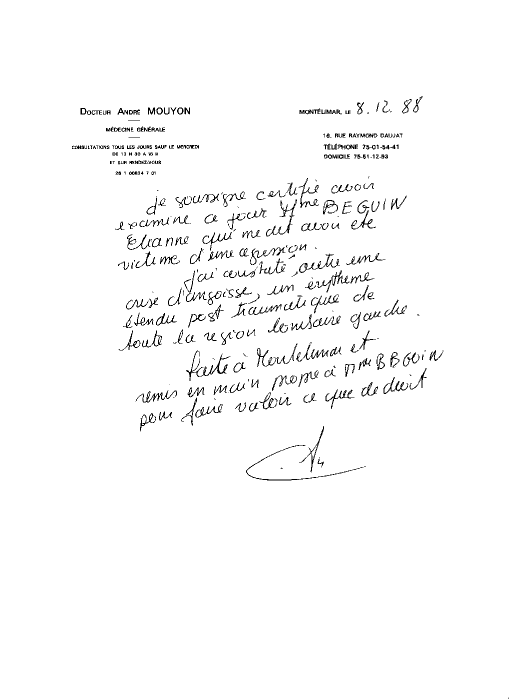 DOCTEUR ANDRÉ MOUYON
MÉDECINE GÉNÉRALE
CONSULTATIONS TOUS LES JOURS SAUF LE MERCREDI
DE 13 H 30 A 16 H
ET SUR RENDEZ-VOUS
26 1 00624 7 01
MONTÉLIMAR, LE 8.12.88
16, RUE RAYMOND DAUJAT
TÉLÉPHONE 75-01-54-41
DOMICILE 75-51-12-93
Je soussigné certifie avoir
examiné ce jour Mme BEGUIN
Elianne qui me dit avoir été
victime d'une agression.
J'ai constaté, outre une
crise d'angoisse, un érythème
étendu post traumatique de
toute la région lombaire gauche.
faite à Montelimar et
remis en main propre à Mme BBGUIN
pour faire valoir ce que de droit